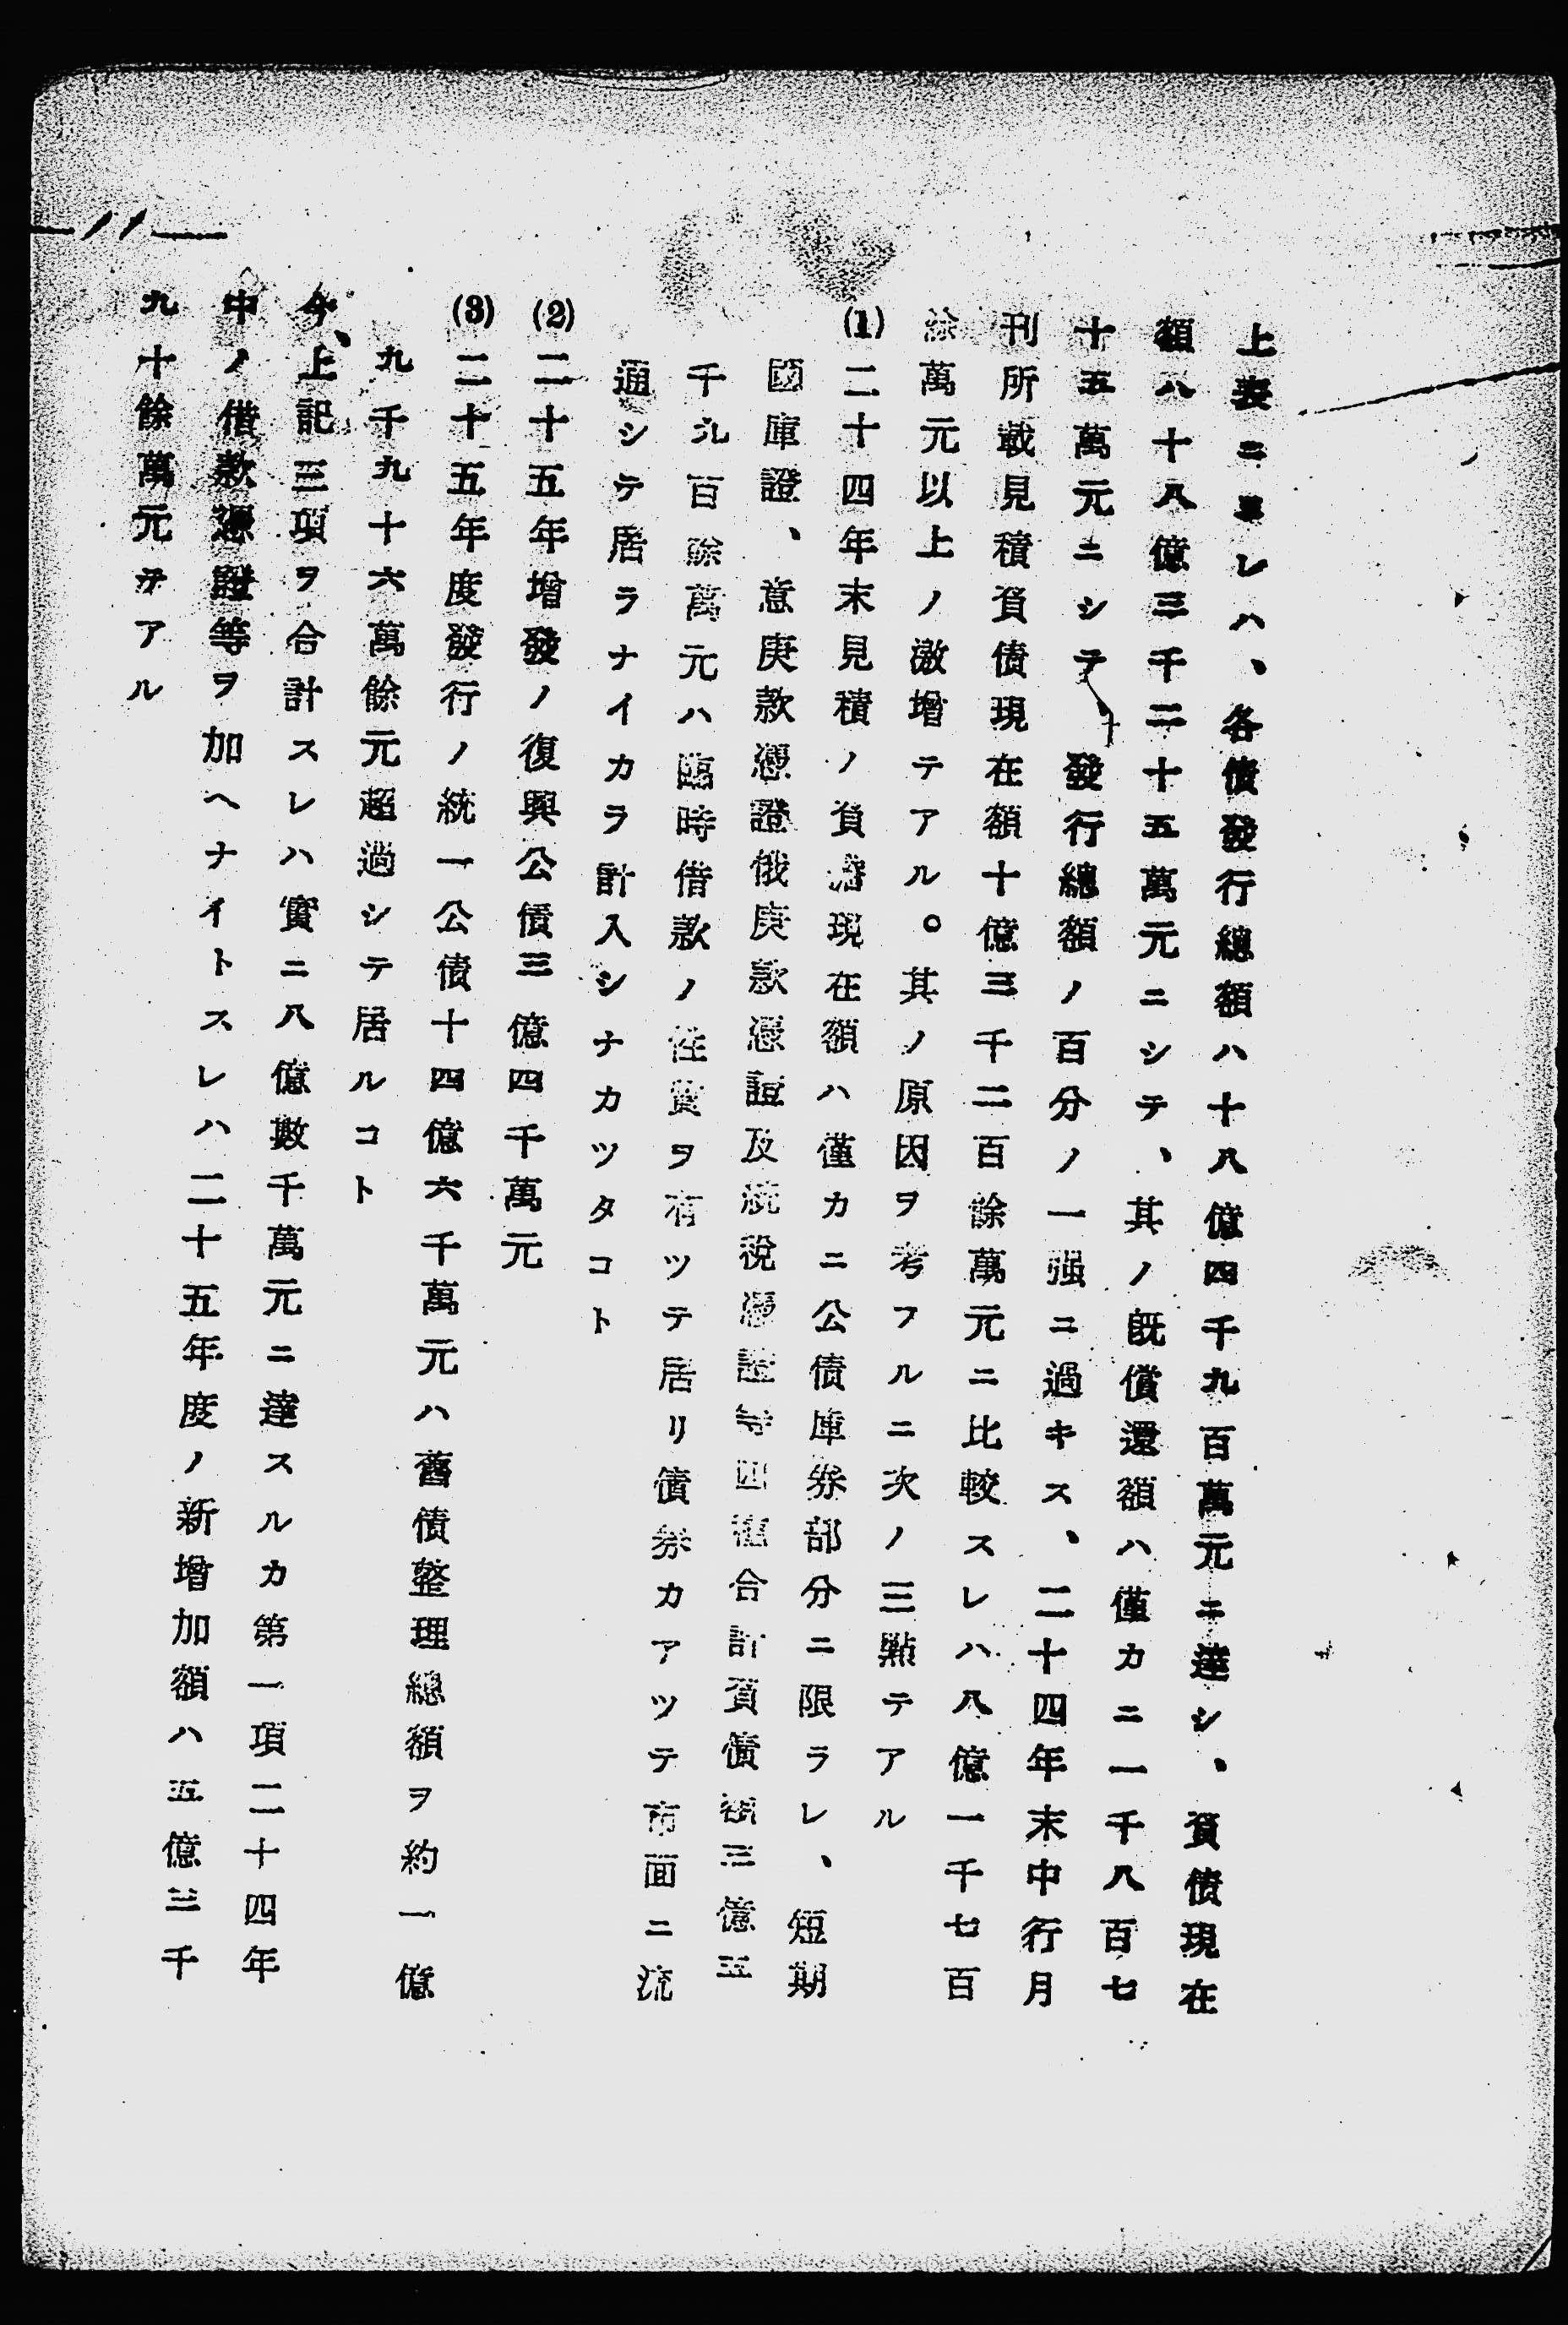 上表ニ準レハ、各債發行總額ハ十八億四千九百萬元ニ達シ、負債現在
額ハ十八億三千二十五萬元ニシテ、其ノ既償還額ハ僅カニ一千八百七
十五萬元ニシテ發行總額ノ百分ノ一强ニ過キス、二十四年末中行月
刊所載見積負債現在額十億三千二百餘萬元ニ比較スレハ八億一千七百
餘萬元以上ノ激增テアル。其ノ原因ヲ考フルニ次ノ三點テアル
(1)二十四年末見積ノ負債現在額ハ僅カニ公債庫券部分ニ限ラレ、短期
國庫證、意庚款憑證俄庚款憑證及統稅憑證等四種合計負債額三億五
千九百餘萬元ハ臨時借款ノ性質ヲ有ツテ居リ債券カアツテ市面ニ流
通シテ居ラナイカラ計入シナカツタコト
(2)二十五年增發ノ復興公債三億四千萬元
(3)二十五年度發行ノ統一公債十四億六千萬元ハ舊債整理總額ヲ約一億
九千九十六萬餘元超過シテ居ルコト
今、上記三項ヲ合計スレハ實ニ八億數千萬元ニ達スルカ第一項二十四年
中ノ借款憑證等ヲ加ヘナイトスレハ二十五年度ノ新增加額ハ五億三千
九十餘萬元テアル